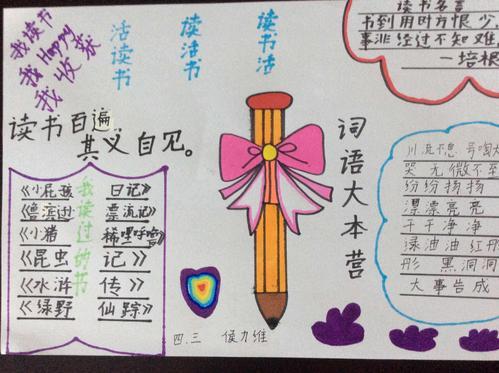 我读书
我Happy
我收获
活读书
读活书
读书活
读书名言
书到用时方恨少
事非经过不知难
—培根
读书百遍,
其义自见。
我读过的书
《小屁孩 日记》
《鲁滨过 漂流记》
《小猪 稀哩呼噜》
《昆虫 记》
《水浒 传》
《绿野 仙踪》
词语大本营
川流不息 号啕大
哭 无微不至
纷纷扬扬
漂漂亮亮
干干净净
绿油油 红彤
彤 黑洞洞
大事告成
四.三 侯力维